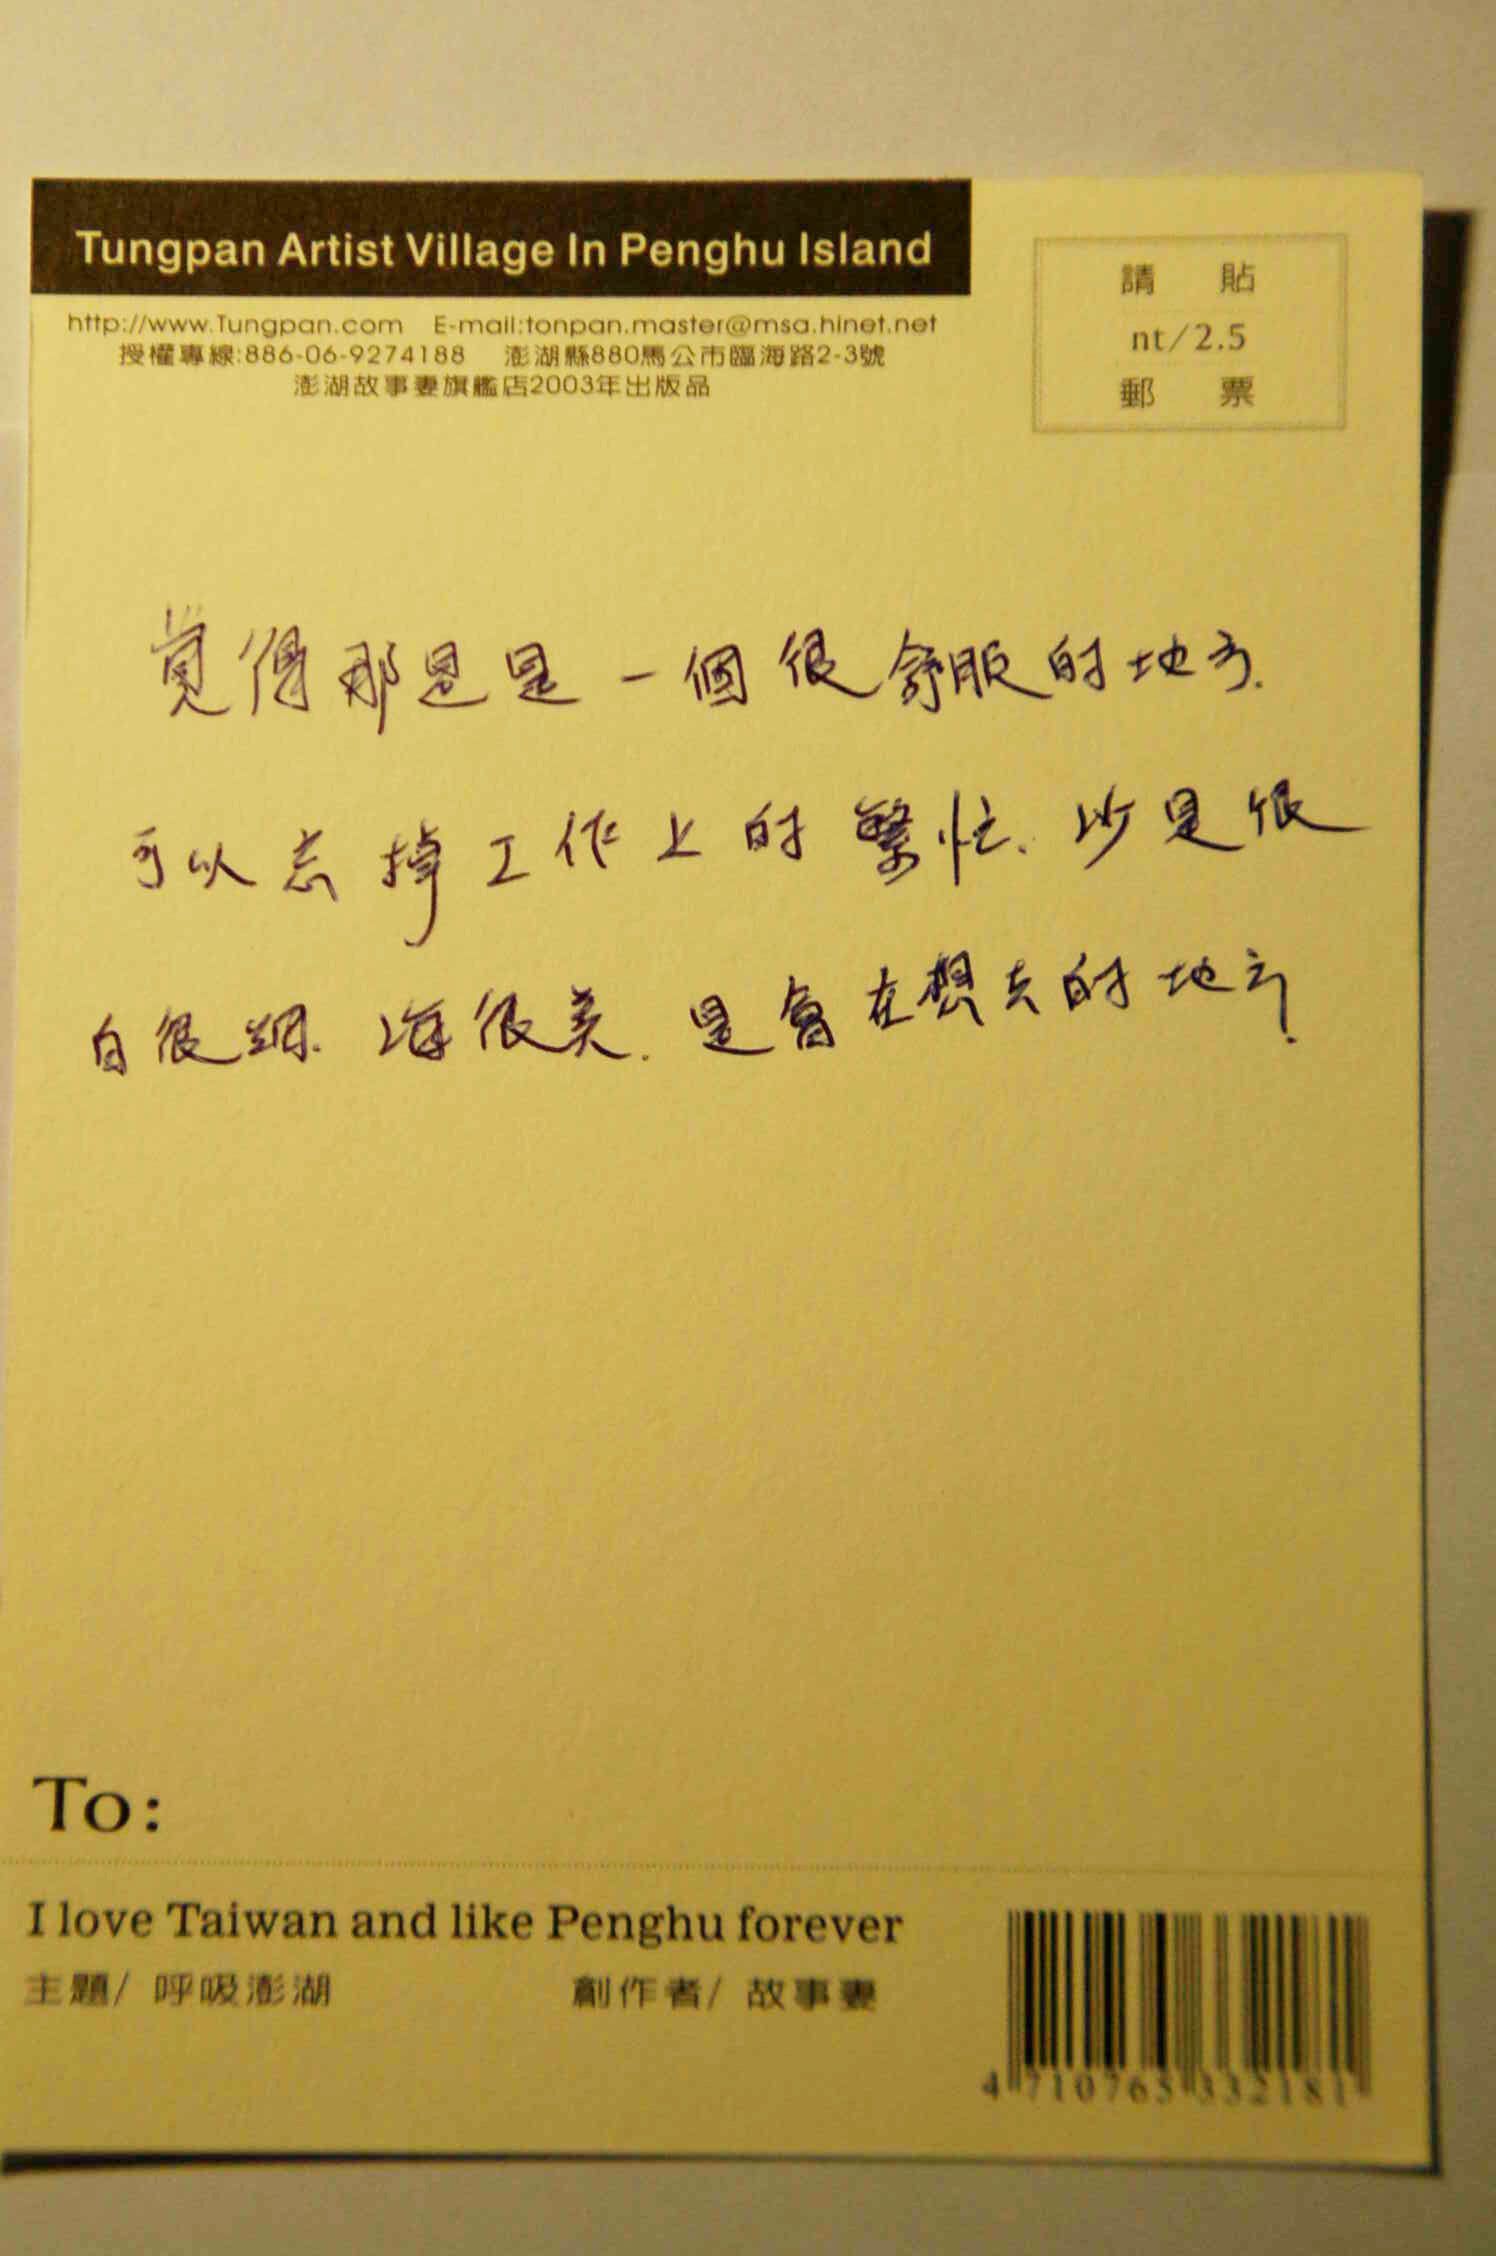 Tungpan Artist Village In Penghu Island
http://www.Tungpan.com E-mail:tonpan.master@msa.hinet.net
授權專線:886-06-9274188 澎湖縣880馬公市臨海路2-3號
澎湖故事妻旗艦店2003年出版品
請 貼
nt/2.5
郵 票
覺得那是一個很舒服的地方.
可以忘掉工作上的繁忙. 沙是很
白很細. 海很美. 是會在想去的地方.
To:
I love Taiwan and like Penghu forever
主題/ 呼吸澎湖 創作者/ 故事妻
4 710765 332181